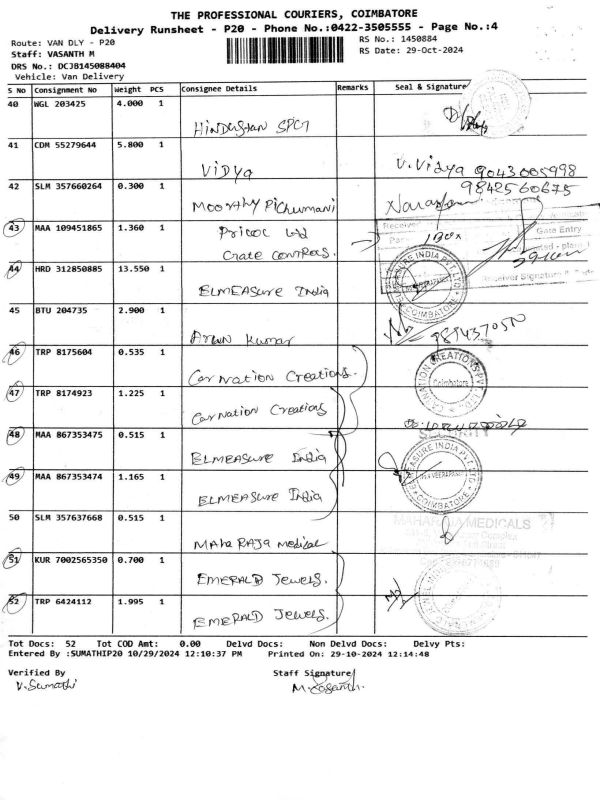 THE PROFESSIONAL COURIERS, COIMBATORE
Delivery Runsheet - P20 - Phone No.:0422-3505555 - Page No.:4
Route: VAN DLY - P20
RS No.: 1450884
Staff: VASANTH M
RS Date: 29-Oct-2024
DRS No.: DCJB145088404
Vehicle: Van Delivery
S No Consignment No Weight PCS Consignee Details Remarks Seal & Signature
40 WGL 203425 4.000 1
Hindustan SPCT
41 CDM 55279644 5.800 1
Vidya V. Vidya 9043005998
42 SLM 357660264 0.300 1 9842560675
Moorthy Pichumani
43 MAA 109451865 1.360 1
Pricol Ltd
Crate controls. 1 Box
Gate Entry
44 HRD 312850885 13.550 1
Receiver Signature
ELMEASURE India
ELMEASURE INDIA PVT LTD COIMBATORE
45 BTU 204735 2.900 1
Arun Kumar
46 TRP 8175604 0.535 1
Carnation Creations.
CARNATION CREATIONS PVT. LTD. Coimbatore
47 TRP 8174923 1.225 1
Carnation Creations
SECURITY
48 MAA 867353475 0.515 1
ELMEASURE India
ELMEASURE INDIA PVT LTD COIMBATORE
49 MAA 867353474 1.165 1
ELMEASURE India
50 SLM 357637668 0.515 1
MAHARAJA MEDICALS
Maha Raja Medical
51 KUR 7002565350 0.700 1
EMERALD Jewels.
52 TRP 6424112 1.995 1
EMERALD Jewels.
Tot Docs: 52 Tot COD Amt: 0.00 Delvd Docs: Non Delvd Docs: Delvy Pts:
Entered By :SUMATHIP20 10/29/2024 12:10:37 PM Printed On: 29-10-2024 12:14:48
Verified By Staff Signature
V. Sumathi M. Vasanth.